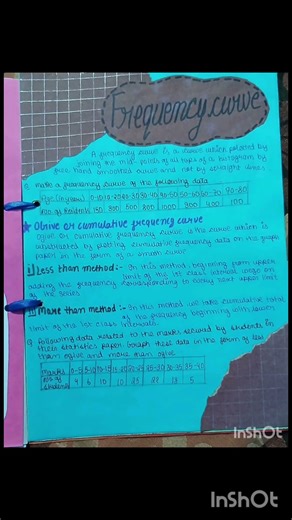 Frequency curve
A frequency curve is a curve which formed by
joining the mid points of all tops of a histogram by
free hand smoothed curve and not by straight lines
Q make a frequency curve of the following data
★ Ogive or cumulative frequency curve
Ogive or cumulative frequency curve is the curve which is
constructed by plotting cumulative frequency data on the graph
paper in the form of a smooth curve
i] Less than method:- In this method beginning from upper
limit of the 1st class interval we go on
adding the frequency corresponding to every next upper limit
of the series
ii] More than method:- In this method we take cumulative total
of the frequency beginning with lower
limit of the 1st class intervals
Q Following data related to the marks secured by students in
their statistics paper. Graph these data in the form of less
than ogive and more than ogive
Marks 0-5 5-10 10-15 15-20 20-25 25-30 30-35 35-40
No. of students 4 6 10 10 25 22 18 5
InShOt
InShOt